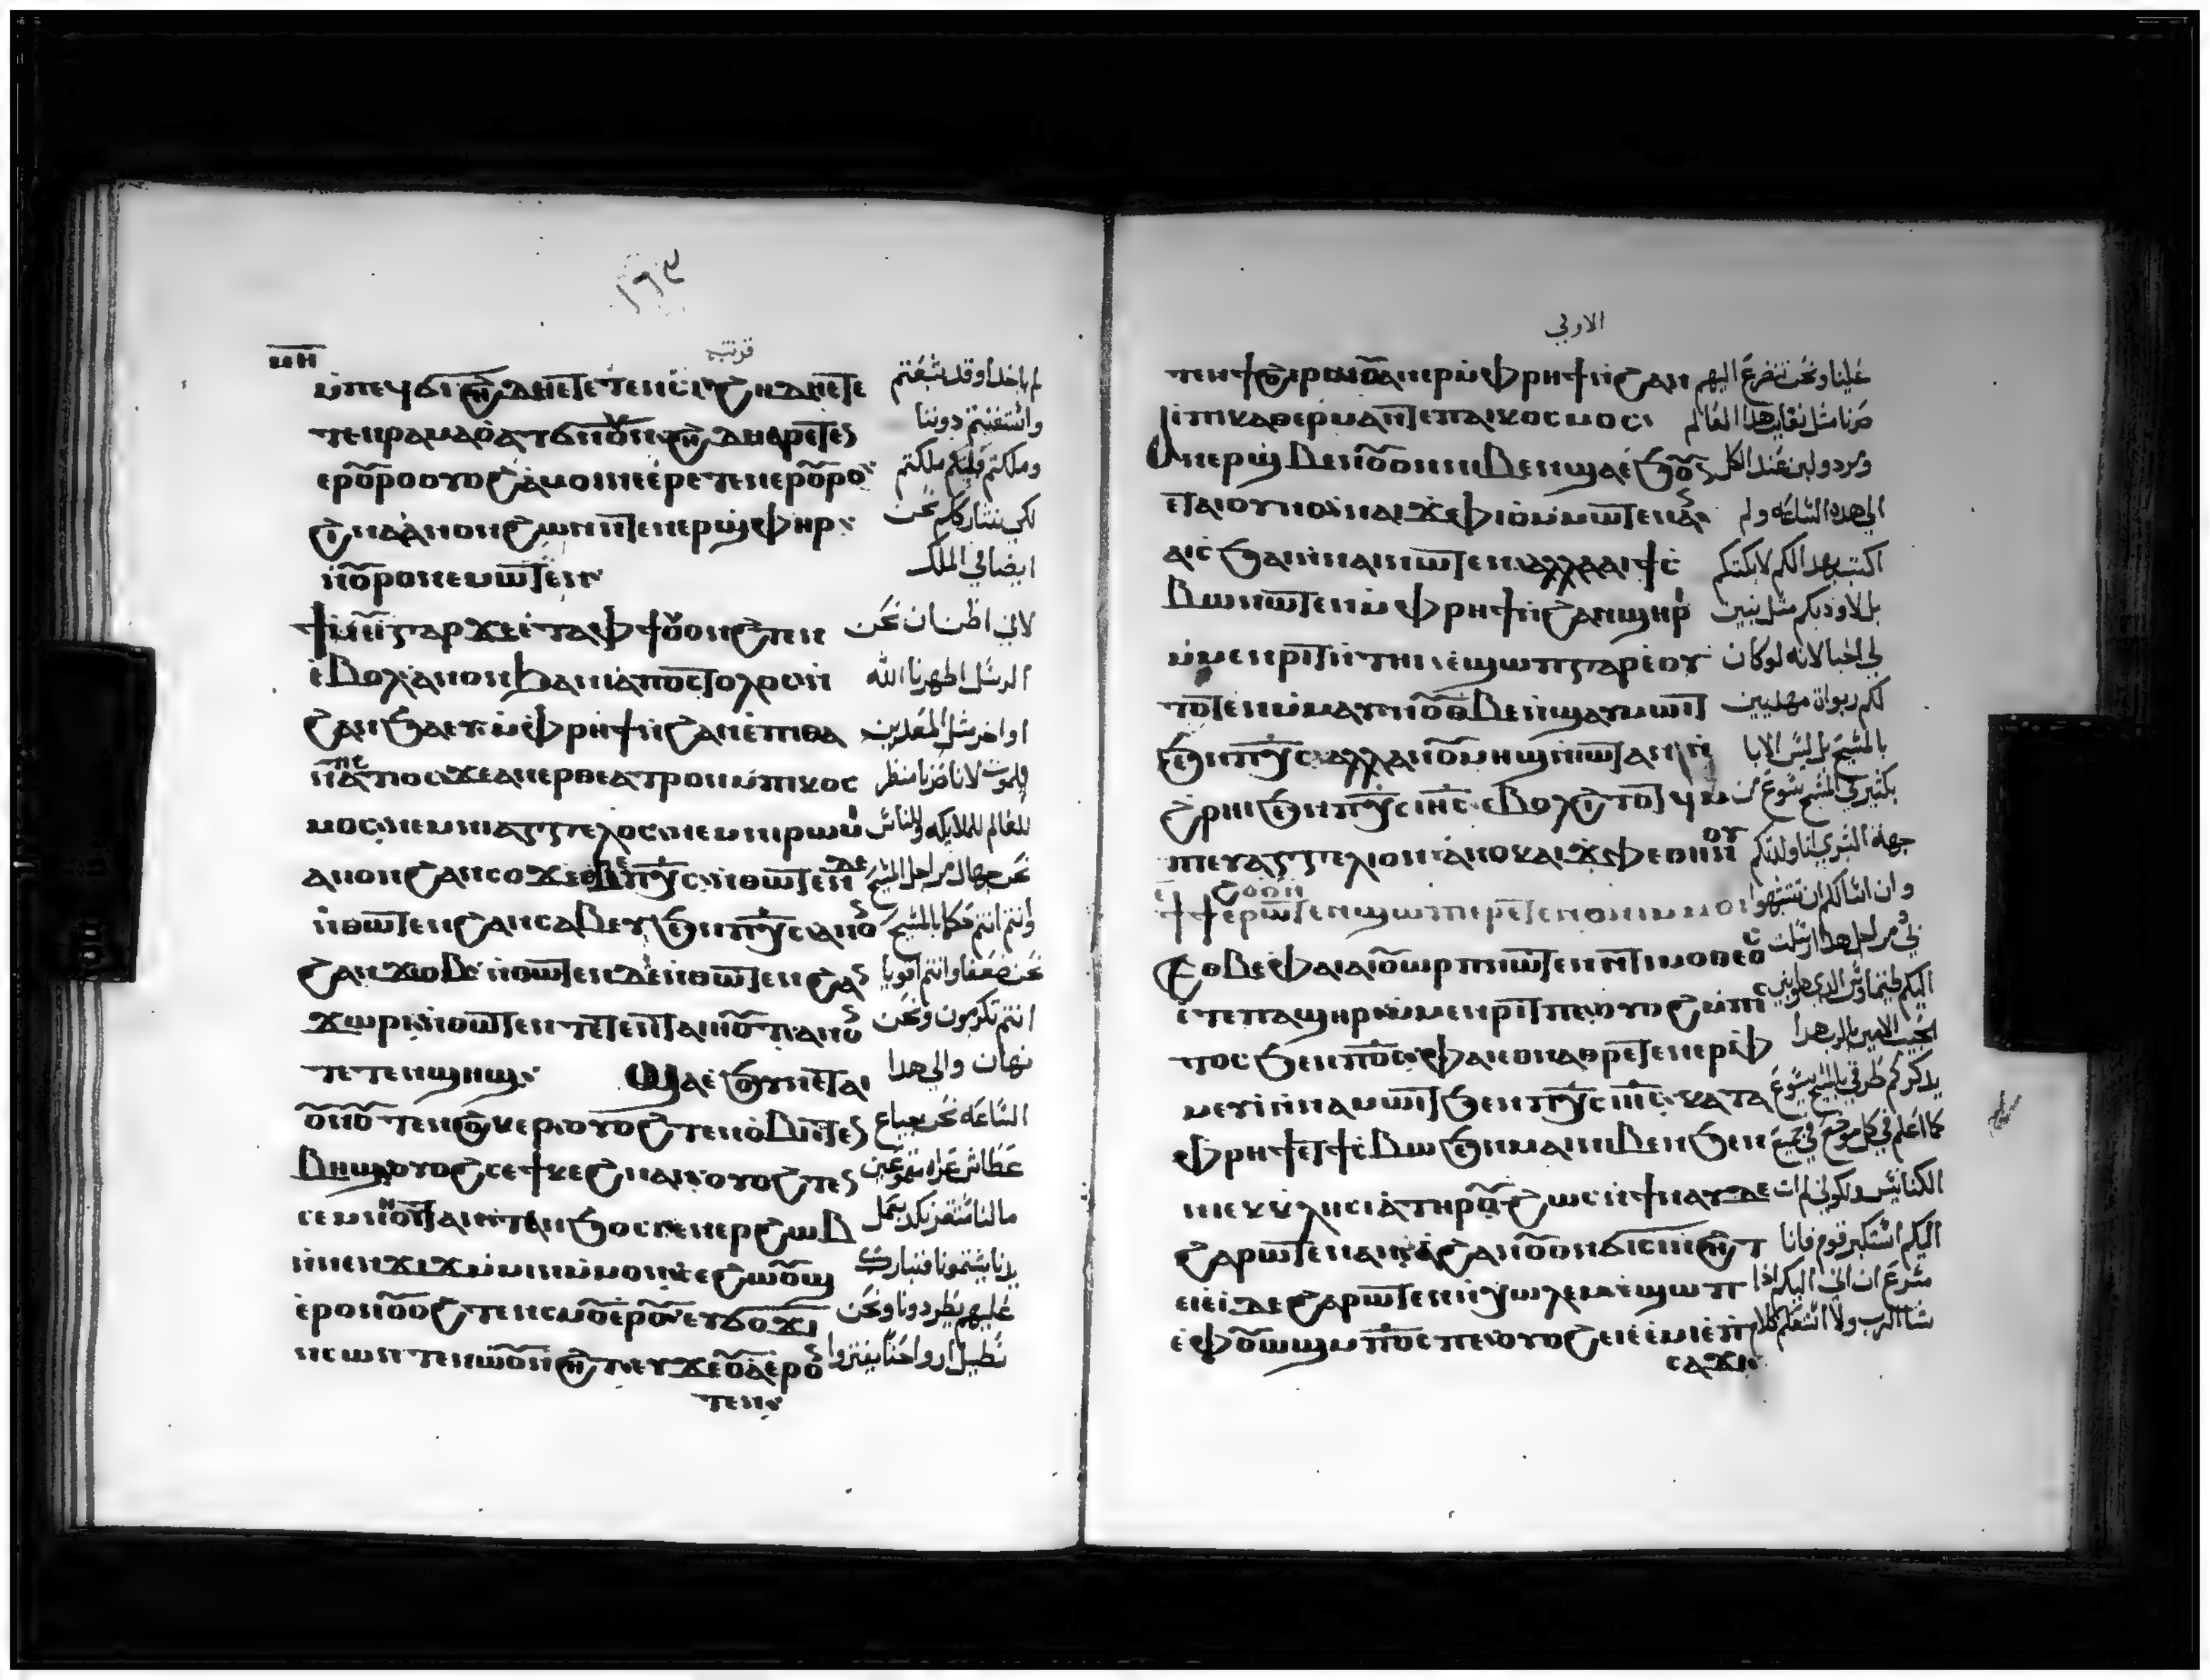 ⲙⲏ
قرنتيه
ⲙ̀ⲡⲉϥϭⲓ ϩⲏⲇⲏ ⲁⲧⲉⲧⲉⲛⲥⲓ ϩⲏⲇⲏ ⲁⲧⲉ
ⲧⲉⲛⲣⲁⲙⲁⲟ̀ ⲁⲧϭⲛⲟⲩⲛ ϩⲏⲇⲏ ⲁⲣⲉⲧⲉⲛ
ⲉⲣⲟⲩⲣⲟ ⲟⲩⲟϩ ⲁⲙⲟⲓ ⲛⲉⲁⲣⲉⲧⲉⲛⲉⲣⲟⲩⲣⲟ
ϩⲓⲛⲁ ⲁⲛⲟⲛ ϩⲱⲛ ⲛ̀ⲧⲉⲛⲉⲣϣⲫⲏⲣ
ⲛ̀ⲟⲩⲣⲟ ⲛⲉⲙⲱⲧⲉⲛ
ϯⲙⲉⲩⲓ ⲅⲁⲣ ϫⲉ ⲉ̀ⲧⲁ ⲫϯ ⲟⲩⲟⲛϩⲧⲉⲛ
ⲉ̀ⲃⲟⲗ ⲁⲛⲟⲛ ϧⲁ ⲛⲓⲁⲡⲟⲥⲧⲟⲗⲟⲥ ⲛ̀
ϩⲁⲛϧⲁⲉⲩ ⲙ̀ⲫⲣⲏϯ ⲛ̀ϩⲁⲛⲉ̀ⲡⲓⲑⲁ
ⲛⲁⲧⲟⲥ ϫⲉ ⲁⲛⲉⲣⲑⲉⲁⲧⲣⲟⲛ ⲙ̀ⲡⲓⲕⲟⲥ
ⲙⲟⲥ ⲛⲉⲙ ⲛⲓⲁⲅⲅⲉⲗⲟⲥ ⲛⲉⲙ ⲛⲓⲣⲱⲙⲓ
ⲁⲛⲟⲛ ϩⲁⲛⲥⲟϫ ⲉⲑⲃⲉ ⲡⲭ̅ⲥ̅ ⲛ̀ⲑⲱⲧⲉⲛ ⲇⲉ
ⲛ̀ⲑⲱⲧⲉⲛ ϩⲁⲛⲥⲁⲃⲉⲩ ϧⲉⲛ ⲡⲭ̅ⲥ̅ ⲁⲛⲟⲛ
ϩⲁⲛϫⲱⲃ ⲛ̀ⲑⲱⲧⲉⲛ ⲇⲉ ⲛ̀ⲑⲱⲧⲉⲛ ϩⲁⲛ
ϫⲱⲣⲓ ⲛ̀ⲑⲱⲧⲉⲛ ⲧⲉⲧⲉⲛⲧⲁⲓⲏⲟⲩⲧ ⲁⲛⲟⲛ
ⲧⲉⲧⲉⲛϣⲏϣ ϣⲁ ⲉ̀ϧⲟⲩⲛ ⲉ̀ⲧⲁⲓ
ⲟⲩⲛⲟⲩ ⲧⲉⲛϩⲟⲕⲉⲣ ⲟⲩⲟϩ ⲧⲉⲛⲟ̀ⲃⲓ ⲧⲉⲛ
ⲃⲏϣ ⲟⲩⲟϩ ⲥⲉϯⲕⲉϩ ⲛⲁⲛ ⲟⲩⲟϩ ⲧⲉⲛ
ⲥⲉⲙⲛⲏⲟⲩⲧ ⲁⲛ ⲧⲉⲛϧⲟⲥⲓ ⲉⲛⲉⲣϩⲱⲃ
ⲛ̀ⲛⲉⲛϫⲓϫ ⲙ̀ⲙⲓⲛ ⲙ̀ⲙⲟⲛ ⲥⲉϩⲱⲟⲩϣ
ⲉ̀ⲣⲟⲛ ⲟⲩⲟϩ ⲧⲉⲛⲥⲙⲟⲩ ⲉ̀ⲣⲱⲟⲩ ⲉⲩϭⲟϫⲓ
ⲛ̀ⲥⲱⲛ ⲧⲉⲛⲱⲟⲩⲛ̀ϩⲏⲧ ⲉⲩϫⲉⲟⲩⲁ ⲉ̀ⲣⲟⲛ
ⲧⲉⲛ
لم ياخذ او قد شبعتم
واستغنيتم دوننا
وملكتم فليتكم ملكتم
لكي نشارككم نحن
ايضا في الملك
لاني اظن ان نحن
الرسل اظهرنا الله
اواخر مثل المعدين
للموت لانا صرنا منظر
للعالم للملايكه وللناس
نحن جهال من اجل المسيح
وانتم انتم حكما بالمسيح
نحن ضعفا وانتم اقويا
انتم تكرمون ونحن
نهان والى هدا
الساعه نحن جياع
عطاش عراه
ما لنا مستقر نكد بعمل
يدنا يشتمونا فنبارك
عليهم يطردونا ونحن
نطيل ارواحنا يفتروا
الاولى
ⲧⲉⲛϯϩⲟ ⲉ̀ⲣⲱⲟⲩ ⲁⲛⲉⲣ ⲙ̀ⲫⲣⲏϯ ⲛ̀ϩⲁⲛ
ⲓⲧⲡⲕⲁⲑⲉⲣⲙⲁ ⲛ̀ⲧⲉ ⲡⲁⲓⲕⲟⲥⲙⲟⲥ
ⲁⲛⲉⲣϣⲃⲉⲛⲟⲩⲟⲛ ⲛⲓⲃⲉⲛ ϣⲁ ⲉ̀ϧⲟⲩⲛ
ⲉ̀ⲧⲁⲓⲟⲩⲛⲟⲩ ⲛⲁⲓ ϫⲉ ⲫⲓⲟⲩ ⲙ̀ⲙⲱⲧⲉⲛ ⲁⲛ
ⲁⲓⲥϧⲁⲓ ⲛ̀ⲛⲁⲓ ⲛⲱⲧⲉⲛ ⲁⲗⲗⲁ ⲁⲓϯⲥ̀
ⲃⲱ ⲛⲱⲧⲉⲛ ⲙ̀ⲫⲣⲏϯ ⲛ̀ϩⲁⲛϣⲏⲣⲓ
ⲙ̀ⲙⲉⲛⲣⲓⲧ ⲛ̀ⲧⲏⲓ ⲉ̀ϣⲱⲡ ⲅⲁⲣ ⲉ̀ⲟⲩ
ⲟⲛⲧⲉⲧⲉⲛ ⲙ̀ⲙⲁⲩ ⲛ̀ⲟⲩⲑⲃⲁ ⲛ̀ϭⲁⲩⲙⲱⲓⲧ
ϧⲉⲛ ⲡⲭ̅ⲥ̅ ⲁⲗⲗⲁ ⲛⲟⲩⲙⲏϣ ⲛ̀ⲓⲱⲧ ⲁⲛ ⲛⲉ
ⲛ̀ϩⲣⲏⲓ ϧⲉⲛ ⲡⲭ̅ⲥ̅ ⲓⲏ̅ⲥ̅ ⲉ̀ⲃⲟⲗ ϩⲓⲧⲟⲧϥ ⲙ̀
ⲡⲓⲉⲩⲁⲅⲅⲉⲗⲓⲟⲛ ⲁ̀ⲛⲟⲕ ⲁⲓϫⲫⲉ ⲑⲏⲛⲟⲩ
ϯϯϩⲟ ⲟⲩⲛ ⲉ̀ⲣⲱⲧⲉⲛ ϣⲱⲡⲓ ⲉ̀ⲣⲉⲧⲉⲛⲟ̀ⲛⲓ ⲙ̀ⲙⲟⲓ
ⲉⲑⲃⲉ ⲫⲁⲓ ⲁⲓⲟⲩⲱⲣⲡ ⲛⲱⲧⲉⲛ ⲛ̀ⲧⲓⲙⲟⲑⲉⲟⲥ
ⲉ̀ⲧⲉ ⲡⲁϣⲏⲣⲓ ⲙ̀ⲙⲉⲛⲣⲓⲧ ⲡⲉ ⲟⲩⲟϩ ⲙ̀ⲡⲓⲥ
ⲧⲟⲥ ϧⲉⲛ ⲡⲟ̅ⲥ̅ ⲫⲁⲓ ⲉⲑⲛⲁⲑⲣⲉⲧⲉⲛⲉⲣⲫ
ⲙⲉⲩⲓ ⲛ̀ⲛⲁⲙⲱⲓⲧ ϧⲉⲛ ⲡⲭ̅ⲥ̅ ⲓⲏ̅ⲥ̅ ⲕⲁⲧⲁ
ⲫⲣⲏϯ ⲉ̀ϯϯⲥⲃⲱ ϧⲉⲛ ⲙⲁⲓ ⲛⲓⲃⲉⲛ ϧⲉⲛ
ⲛⲓⲉⲕⲕⲗⲏⲥⲓⲁ̀ ⲧⲏⲣⲟⲩ ϩⲱⲥ ⲛ̀ϯⲛⲁⲩ ⲇⲉ
ϩⲁⲣⲱⲧⲉⲛ ⲁⲛ ⲁ̀ ϩⲁⲛⲟⲩⲟⲛ ϭⲓⲥⲓ ⲛ̀ϩⲏⲧ
ⲉⲓⲉ̀ⲓ ⲇⲉ ϩⲁⲣⲱⲧⲉⲛ ⲛ̀ⲭⲱⲗⲉⲙ ⲉ̀ϣⲱⲡ
ⲉ̀ⲫⲟⲩⲱϣ ⲙ̀ⲡⲟ̅ⲥ̅ ⲡⲉ ⲟⲩⲟϩ ⲉⲓⲉ̀ⲉ̀ⲙⲓ ⲉ̀ⲡ
ⲥⲁϫⲓ
علينا ونحن نتضرع اليهم
صرنا مثل نفايه هدا العالم
ومردولين عند الكل
الى هده الساعه ولم
اكتب بهدا لكم لابكتكم
بل لاودبكم مثل بنين
لي احبا لانه لو كان
لكم ربوات مهديين
بالمسيح بل ليس الابا
بكثير في المسيح يسوع من
جهة البشرى انا ولدتكم
وان اسالكم ان تتشبهوا
بي من اجل هدا ارسلت
اليكم طيماتاوس الدي هو ابني
الحبيب الامين بالرب هدا
يدكركم طرقي بالمسيح يسوع
كما اعلم في كل موضع في جميع
الكنايس وكوني لم ات
اليكم استكبر قوم فانا
مسرع ان اتي اليكم اذا
شا الرب ولا استعلم كلام